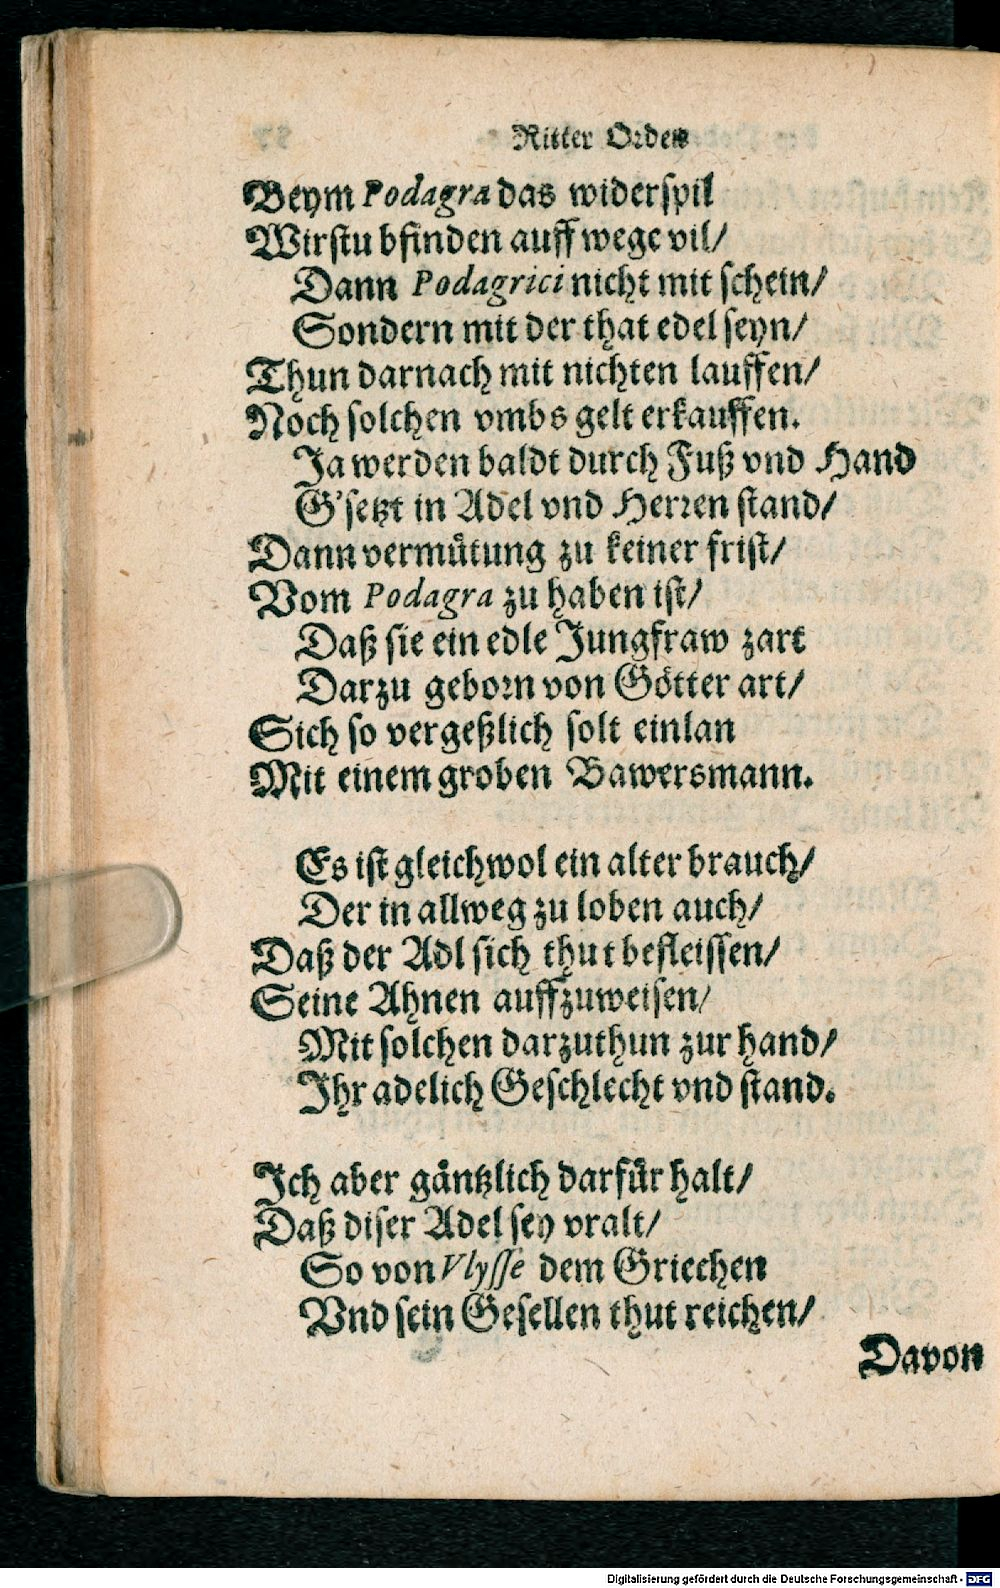 Ritter Orden
Beym Podagra das widerspil
Wirstu bfinden auff wege vil/
Dann Podagrici nicht mit schein/
Sondern mit der that edel seyn/
Thun darnach mit nichten lauffen/
Noch solchen vmbs gelt erkauffen.
Ja werden baldt durch Fuß vnd Hand
G'setzt in Adel vnd Herren stand/
Dann vermuͤtung zu keiner frist/
Vom Podagra zu haben ist/
Daß sie ein edle Jungfraw zart
Darzu geborn von Goͤtter art/
Sich so vergeßlich solt einlan
Mit einem groben Bawersmann.
Es ist gleichwol ein alter brauch/
Der in allweg zu loben auch/
Daß der Adl sich thut befleissen/
Seine Ahnen auffzuweisen/
Mit solchen darzuthun zur hand/
Ihr adelich Geschlecht vnd stand.
Ich aber gaͤntzlich darfuͤr halt/
Daß diser Adel sey vralt/
So von Vlysse dem Griechen
Vnd sein Gesellen thut reichen/
Davon
Digitalisierung gefördert durch die Deutsche Forschungsgemeinschaft - DFG